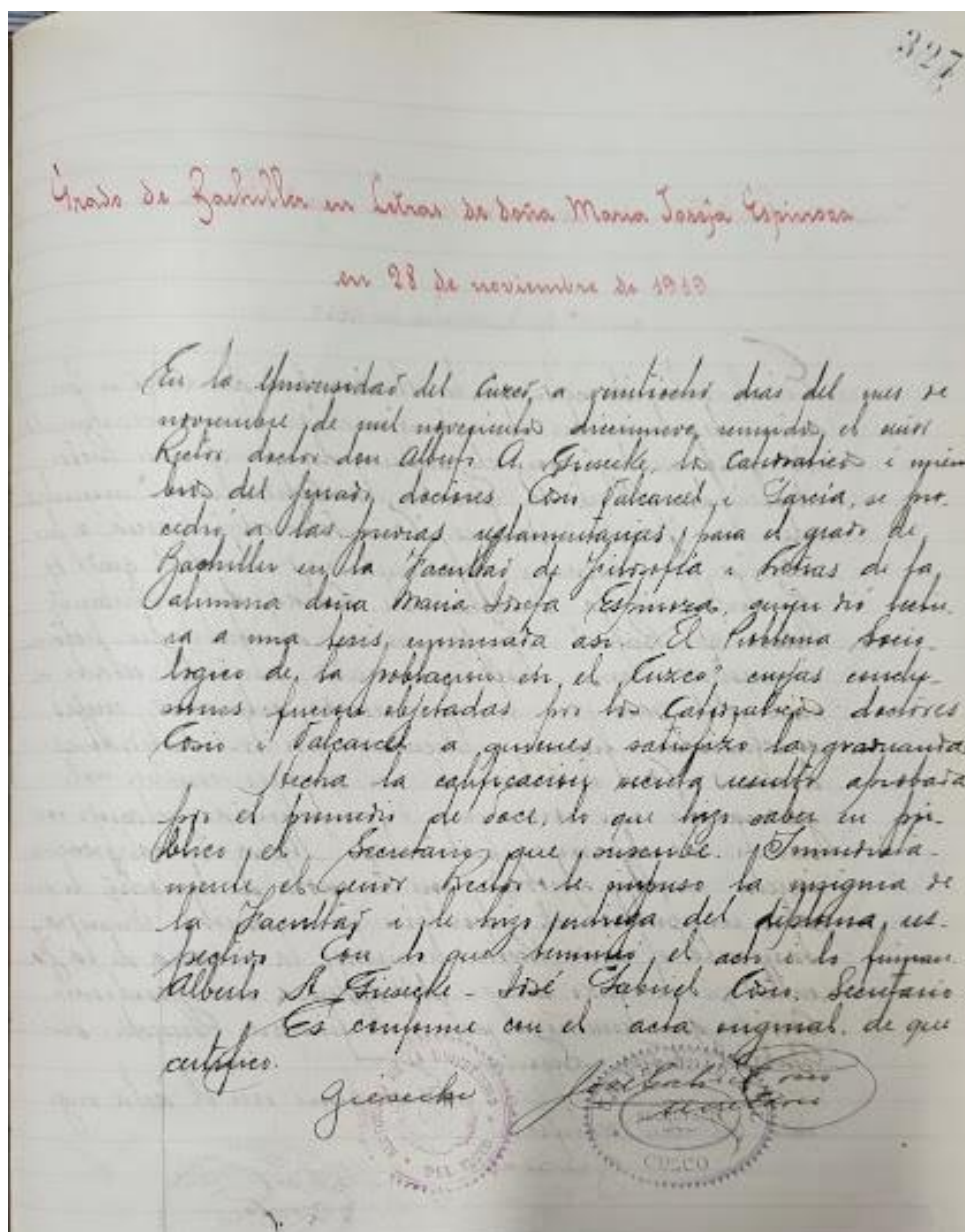 327
Grado de Bachiller en Letras de doña Maria Josefa Espinoza
en 28 de noviembre de 1919
En la Universidad del Cuzco, a veintiocho dias del mes de
noviembre de mil novecientos diecinueve, reunidos el señor
Rector doctor don Alberto A. Giesecke, los Catedraticos i miem
bros del Jurado, doctores Cosio Valcarcel i Garcia, se pro-
cedió a las pruebas reglamentarias para el grado de
Bachiller en la Facultad de Filosofia i Letras de la
alumna doña Maria Josefa Espinoza, quien dió lectu-
ra a una tesis, enunciada asi: "El Problema Socio-
logico de la poblacion en el Cuzco", cuyas conclu-
siones fueron objetadas por los Catedraticos doctores
Cosio i Valcarcel a quienes satisfizo la graduanda
Hecha la calificacion secreta resultó aprobada
por el promedio de doce, lo que hizo saber en pú-
blico el Secretario que suscribe. Inmediata-
mente el señor Rector le impuso la insignia de
la Facultad i le hizo entrega del diploma res-
pectivo. Con lo que terminó el acto i lo firman.
Alberto A. Giesecke - José Gabriel Cosio. Secretario
Es conforme con el acta original. de que
certifico.
Giesecke José Gabriel Cosio
Secretario
CUZCO